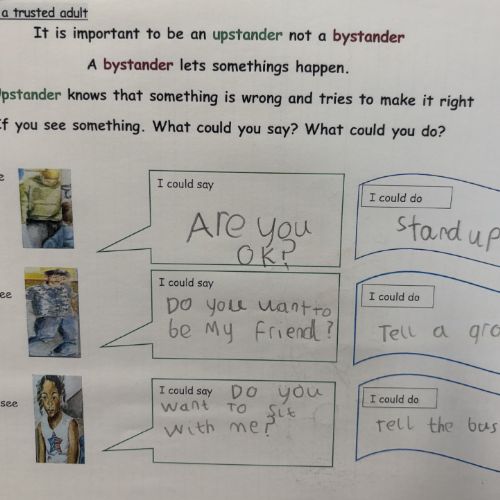 a trusted adult
It is important to be an upstander not a bystander
A bystander lets somethings happen.
Upstander knows that something is wrong and tries to make it right
If you see something. What could you say? What could you do?
I could say
Are you
OK?
I could do
Stand up
see
I could say
Do you want to
be My Friend?
I could do
Tell a
see
I could say Do you
want To Sit
with me?
I could do
Tell the bus